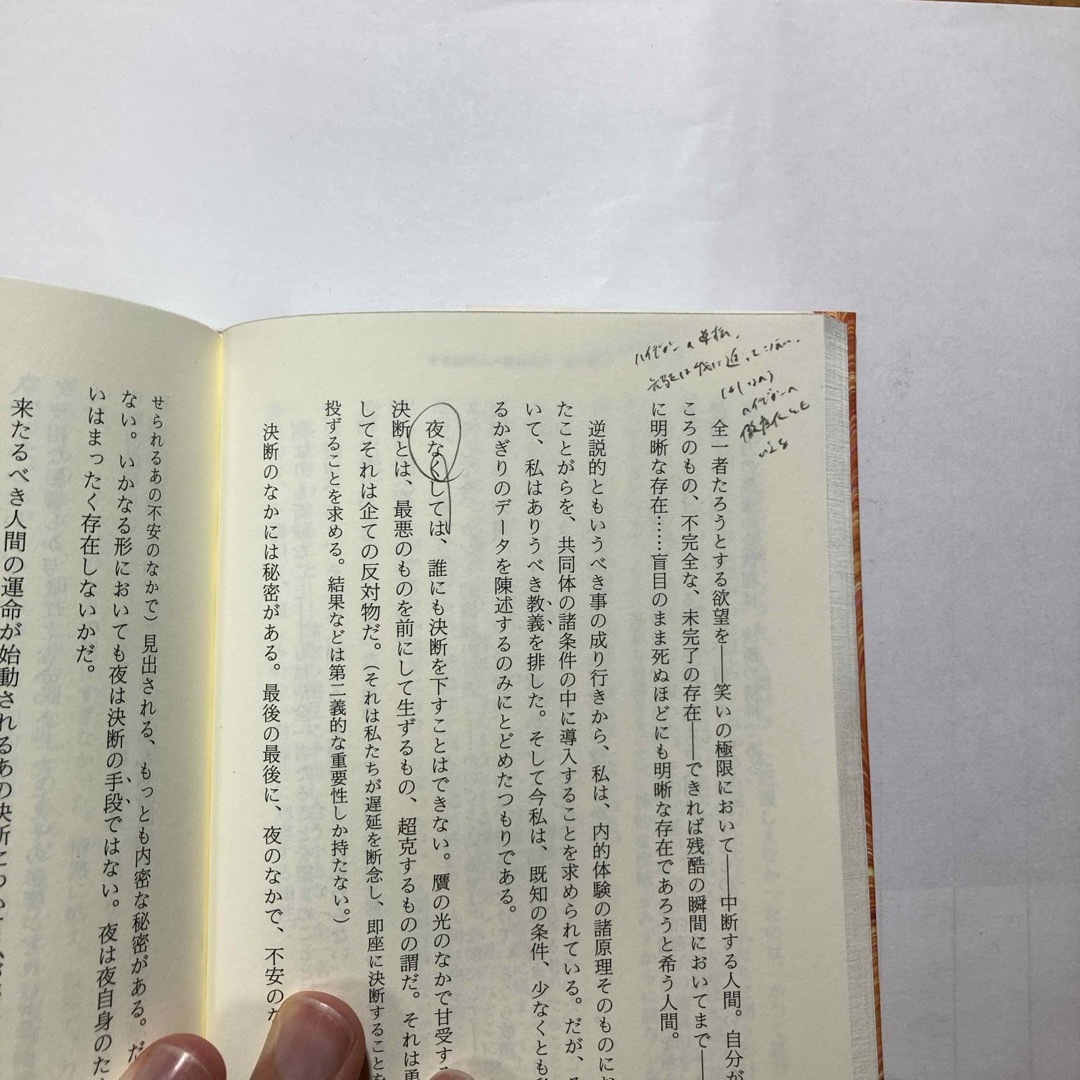 全一者たろうとする欲望を――笑いの極限において――中断する人間。自分が
ころのもの、不完全な、未完了の存在――できれば残酷の瞬間においてまで――
に明晰な存在……盲目のまま死ぬほどにも明晰な存在であろうと希う人間。
逆説的ともいうべき事の成り行きから、私は、内的体験の諸原理そのものにお
たことがらを、共同体の諸条件の中に導入することを求められている。だが、そ
いて、私はありうべき教義を排した。そして今私は、既知の条件、少なくとも私
るかぎりのデータを陳述するのみにとどめたつもりである。
夜なくしては、誰にも決断を下すことはできない。贋の光のなかで甘受する
決断とは、最悪のものを前にして生ずるもの、超克するものの謂だ。それは勇
してそれは企ての反対物だ。（それは私たちが遅延を断念し、即座に決断することを
投ずることを求める。結果などは第二義的な重要性しか持たない。）
決断のなかには秘密がある。最後の最後に、夜のなかで、不安のな
せられるあの不安のなかで）見出される、もっとも内密な秘密がある。だ
ない。いかなる形においても夜は決断の手段ではない。夜は夜自身のた
いはまったく存在しないかだ。
来たるべき人間の運命が始動されるあの決断について